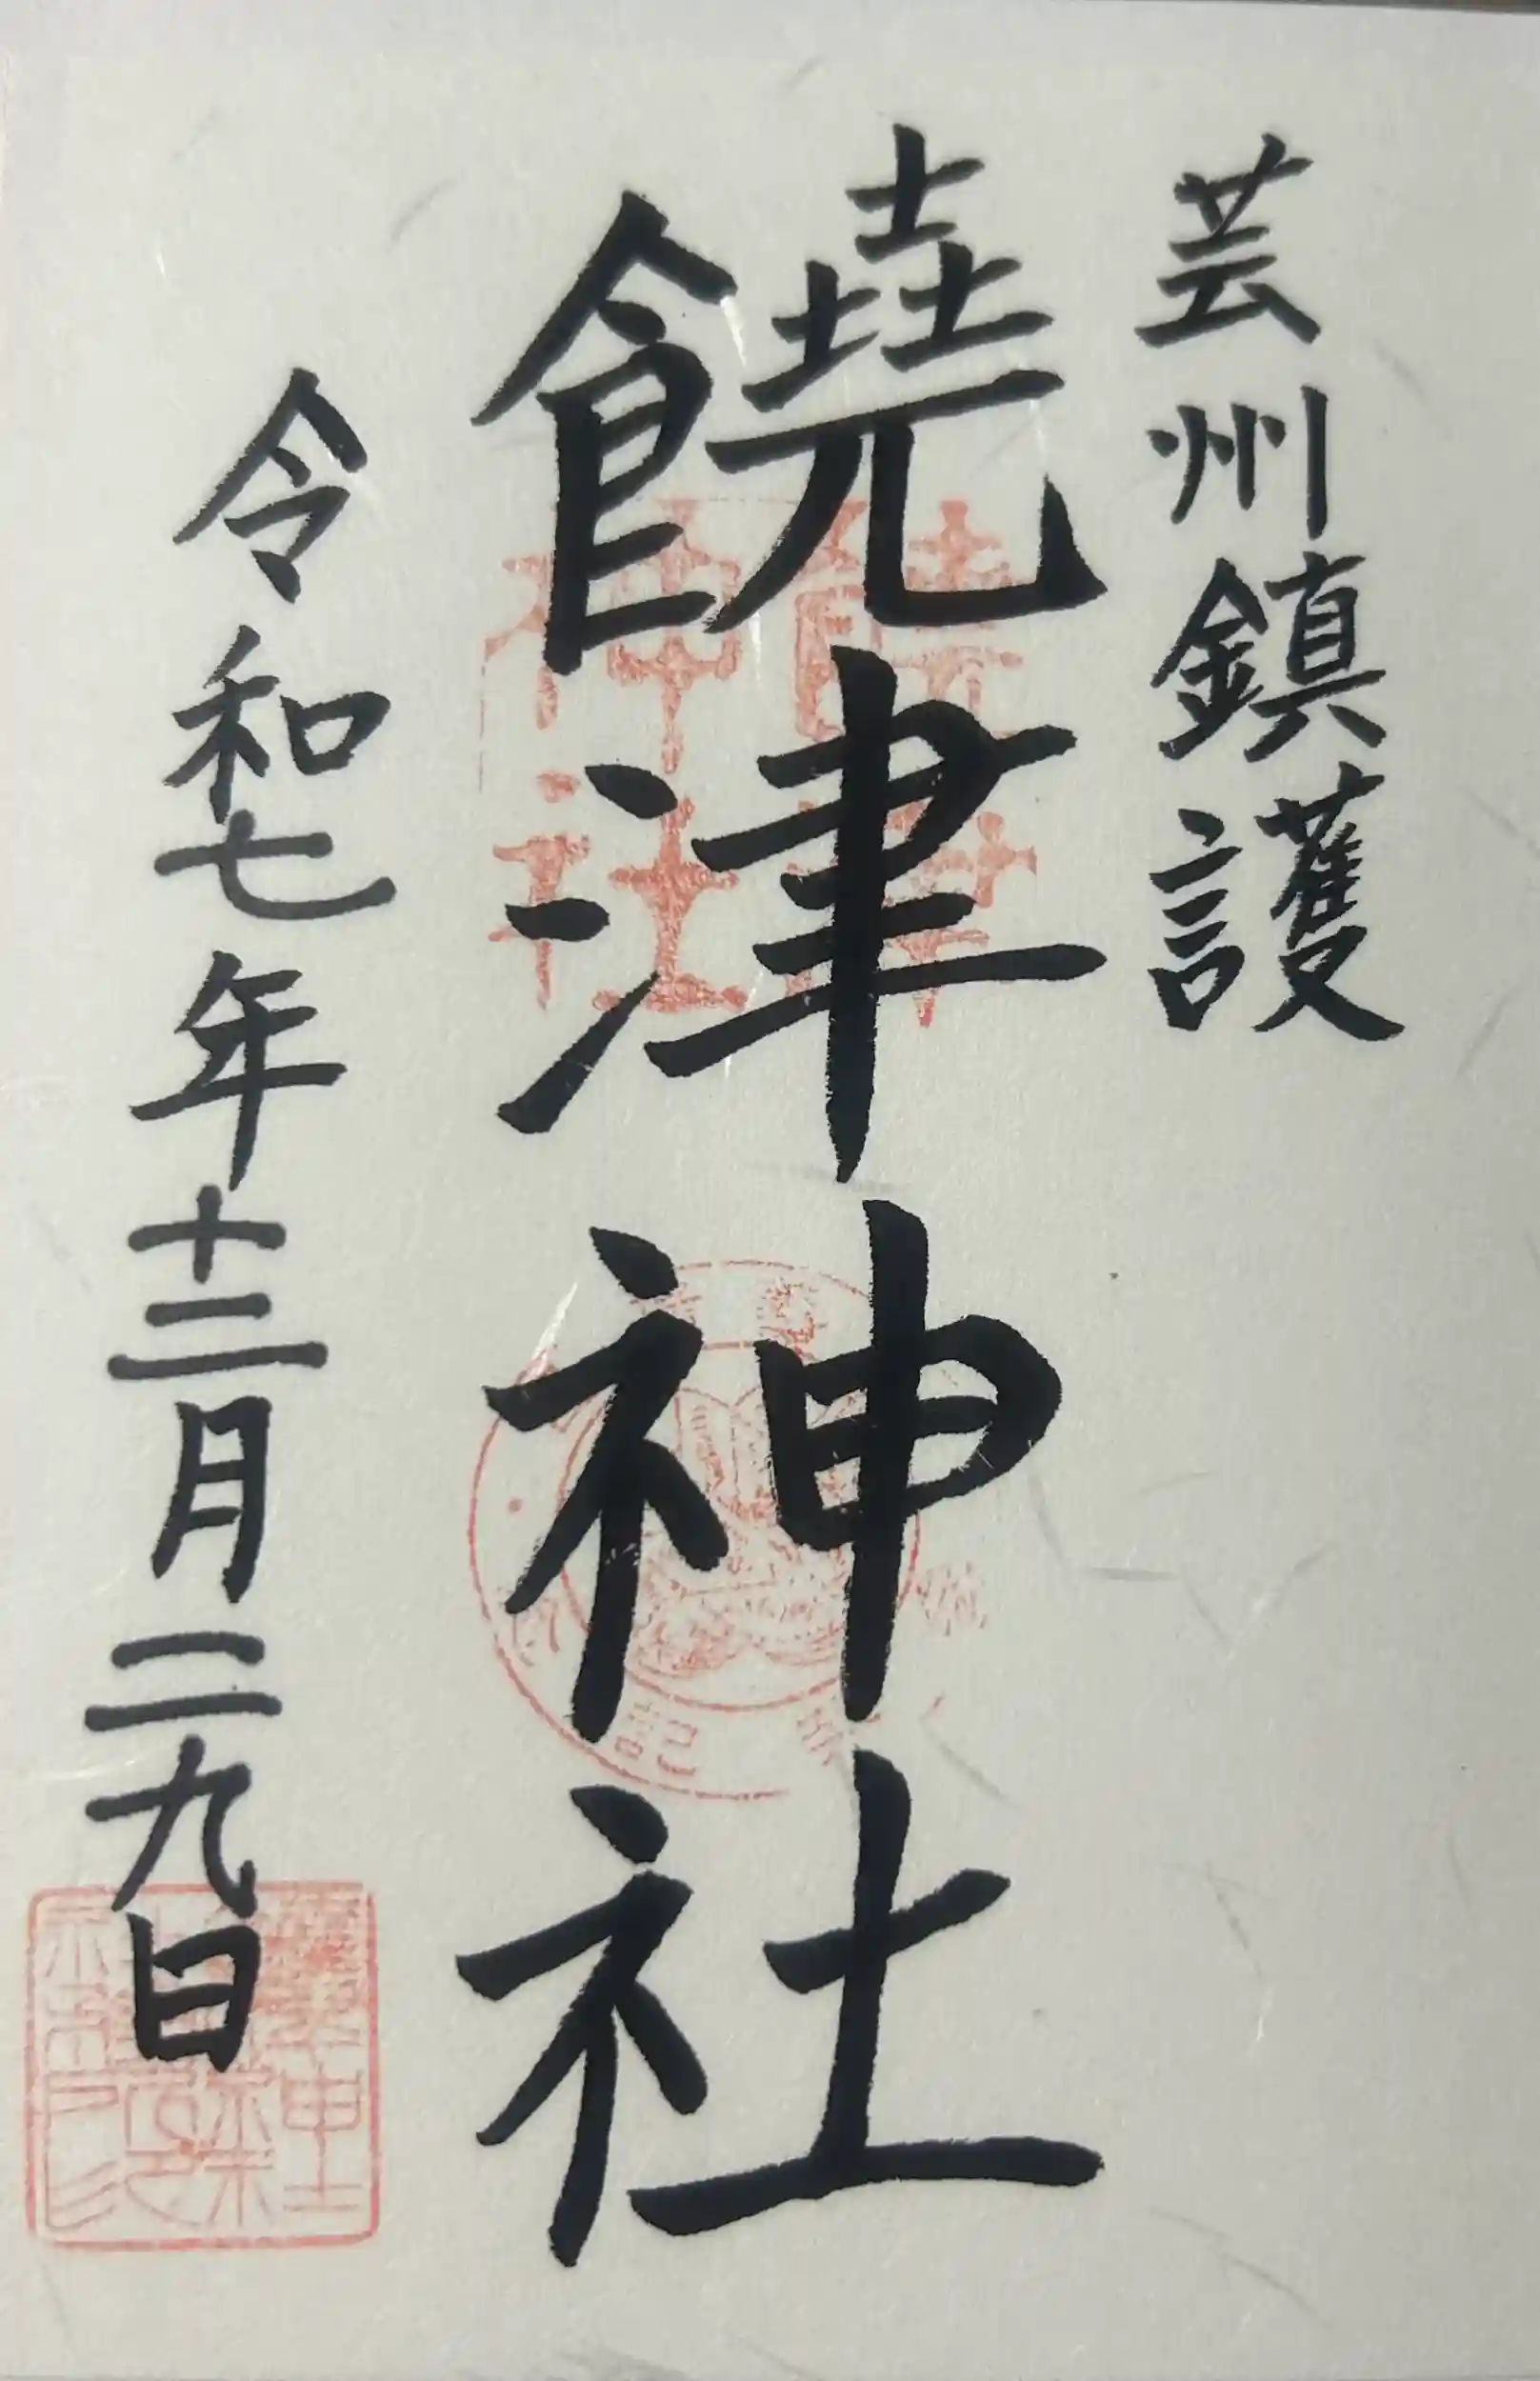 芸州鎮護
饒津神社
令和七年十二月二九日